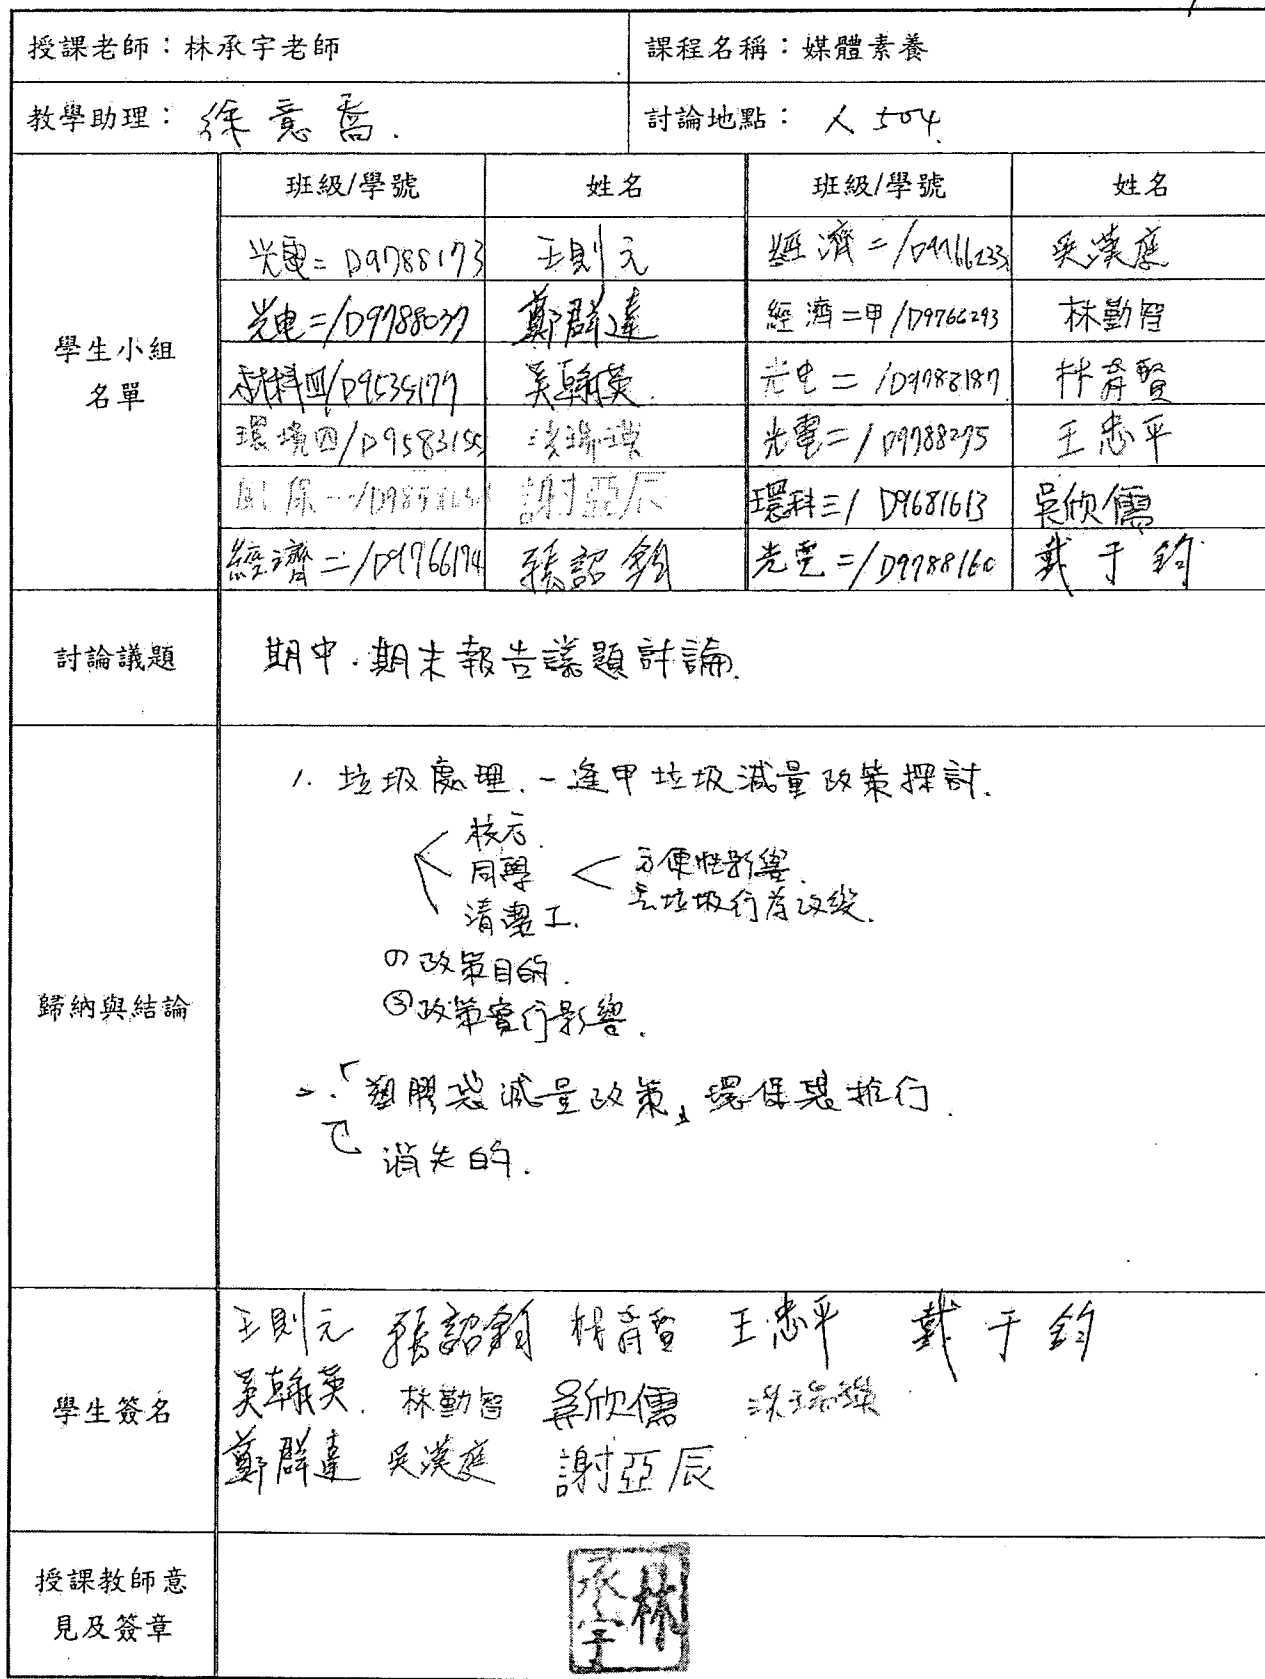 授課老師：林承宇老師 課程名稱：媒體素養
教學助理：徐意喬. 討論地點：人504
學生小組名單
班級/學號 姓名 班級/學號 姓名
光電二 D9788173 王則元 經濟二/D9766233 吳漢庭
光电二/D9788037 鄭群達 經濟二甲/D9766293 林勤智
材料四/D9535177 吳翰英. 光电二/D9788187 林育賢
環境四/D9583155 洪瑞璞 光電二/D9788275 王忠平
謝亞辰 環科三/D9681613 吳欣儒
經濟二/D9766174 張詔鈞 光電二/D9788160 戴于鈞
討論議題 期中.期末報告議題討論.
歸納與結論
1. 垃圾處理.-逢甲垃圾減量政策探討.
校方.
同學 方便性影響.
丟垃圾行為改變.
清潔工.
政策目的.
政策實行影響.
二.「塑膠袋減量政策」環保袋推行.
消失的.
學生簽名
王則元 張詔鈞 林育賢 王忠平 戴于鈞
吳翰英. 林勤智 吳欣儒 洪瑞璞
鄭群達 吳漢庭 謝亞辰
授課教師意見及簽章
林承宇